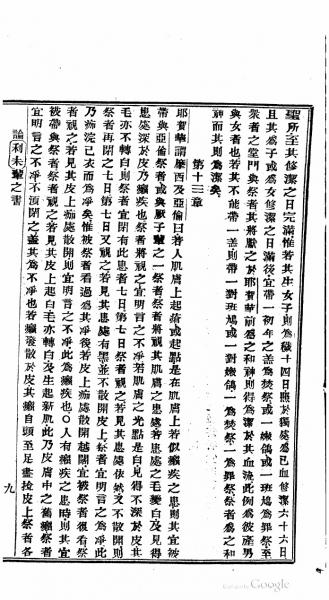 聖所至其修潔之日完滿惟若其生女子則為穢十四日照於獨處為已血修潔六十六日
且其為子或為女修潔之日滿後宜帶一初年之羔為焚祭或一嫩鴿或一班鳩為罪祭至
衆者之堂門與祭者其將獻之於耶賀華前為之和神則得為潔於其血流此例為彼產男
與女者也若其不能帶一羔則帶一對班鳩或一對嫩鴿一為焚祭一為罪祭祭者為之和
神而其則為潔矣
第十三章
耶賀華謂摩西及亞倫曰若人肌膚上起菢或起點是在肌膚上若似癩疾之患則其宜被
帶與亞倫祭者或與厥子輩之一祭者祭者將觀其肌膚之患處若患處之毛變白及見得
患處深於皮乃癩疾也祭者將觀之宜明言之不淨若肌膚之光點是白見得不深於皮其
毛亦不轉白則祭者宜閉有此患者七日第七日祭者觀之若見其患處依然又不散開則
祭者再閉之七日第七日又觀之若見其患處有黑並不散開皮上祭者宜明言之為淨此
乃痂浣已衣而為淨矣惟被祭者看過為其淨後若皮上痂處散開越開宜被祭者復看祭
者觀之若見其皮上痂處散開則宜明言之不淨此為癩疾也○人有癩疾之患時則其宜
被帶與祭者祭者觀之若見其皮上起白毛亦轉白及生起新肌此乃皮膚中之舊癩祭者
宜明言之不淨不須閉之蓋其為不淨也若癩發散於皮其癩自頭至足盡掩皮上祭者各
論利未輩之書
九
Google